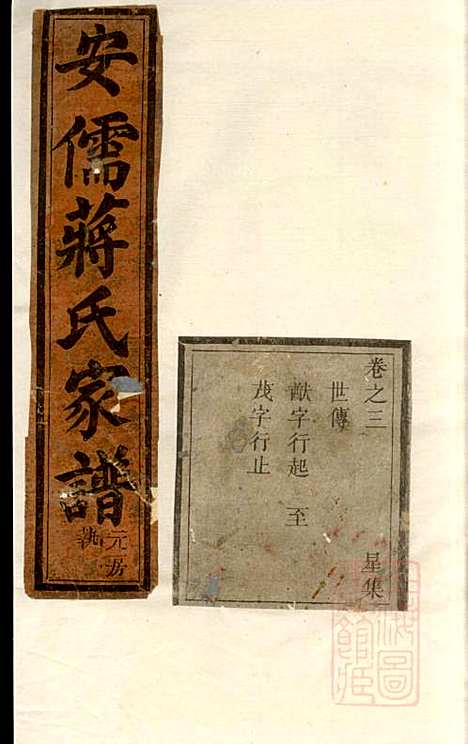 安儒蔣氏家譜
元房
執
卷之三 星集
世傳
猷字行起 至
茂字行止